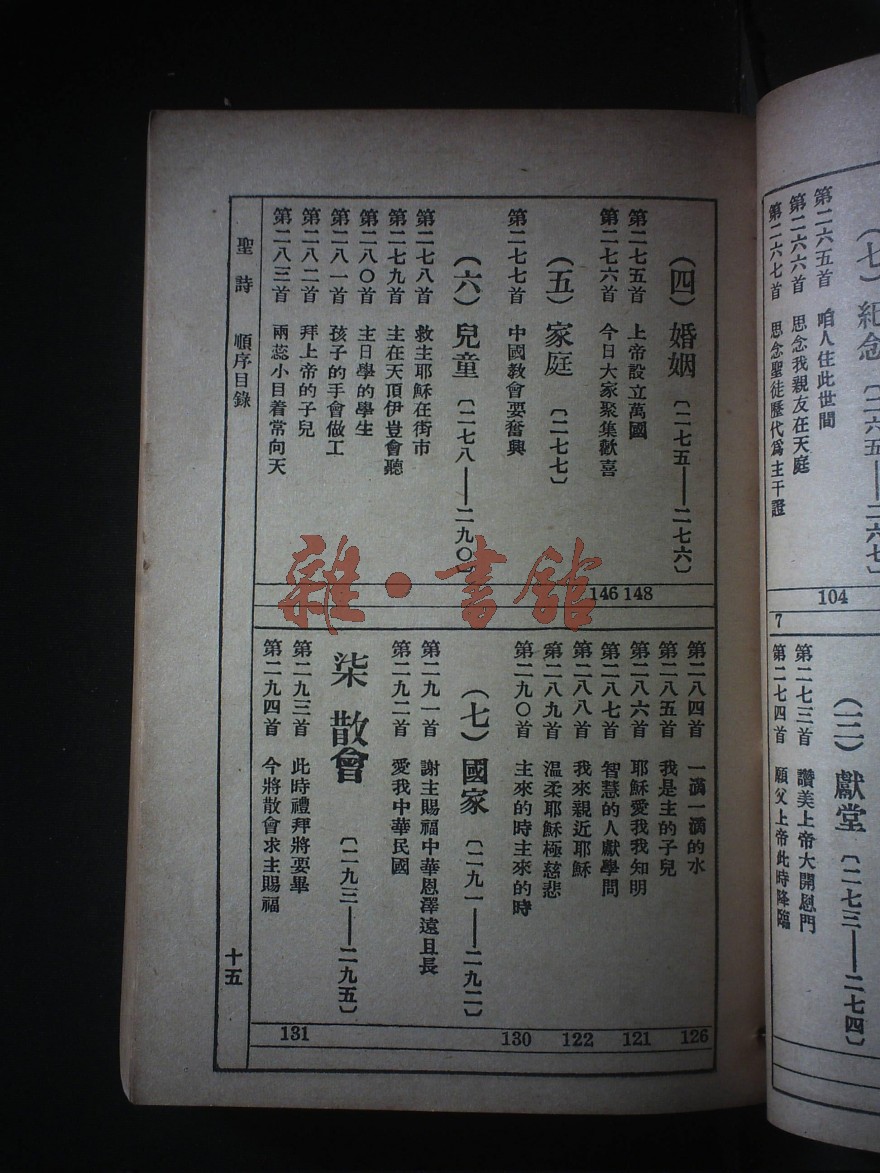 (七) 紀念 〔二六五——二六七〕
第二六五首 咱人住此世間
第二六六首 思念我親友在天庭
第二六七首 思念聖徒歷代爲主干證
104
7
獻堂 〔二七三——二七四〕
第二七三首 讚美上帝大開恩門
第二七四首 願父上帝此時降臨
(四) 婚姻 〔二七五——二七六〕
第二七五首 上帝設立萬國
第二七六首 今日大家聚集歡喜
(五) 家庭 〔二七七〕
第二七七首 中國教會要奮興
(六) 兒童 〔二七八——二九〇〕
第二七八首 救主耶穌在街市
第二七九首 主在天頂伊豈會聽
第二八〇首 主日學的學生
第二八一首 孩子的手會做工
第二八二首 拜上帝的子兒
第二八三首 兩蕊小目着常向天
146 148
雜·書館
第二八四首 一滴一滴的水
第二八五首 我是主的子兒
第二八六首 耶穌愛我我知明
第二八七首 智慧的人獻學問
第二八八首 我來親近耶穌
第二八九首 溫柔耶穌極慈悲
第二九〇首 主來的時主來的時
(七) 國家 〔二九一——二九二〕
第二九一首 謝主賜福中華恩澤遠且長
第二九二首 愛我中華民國
柒 散會 〔二九三——二九五〕
第二九三首 此時禮拜將要畢
第二九四首 今將散會求主賜福
131 130 122 121 126
聖詩 順序目錄
十五